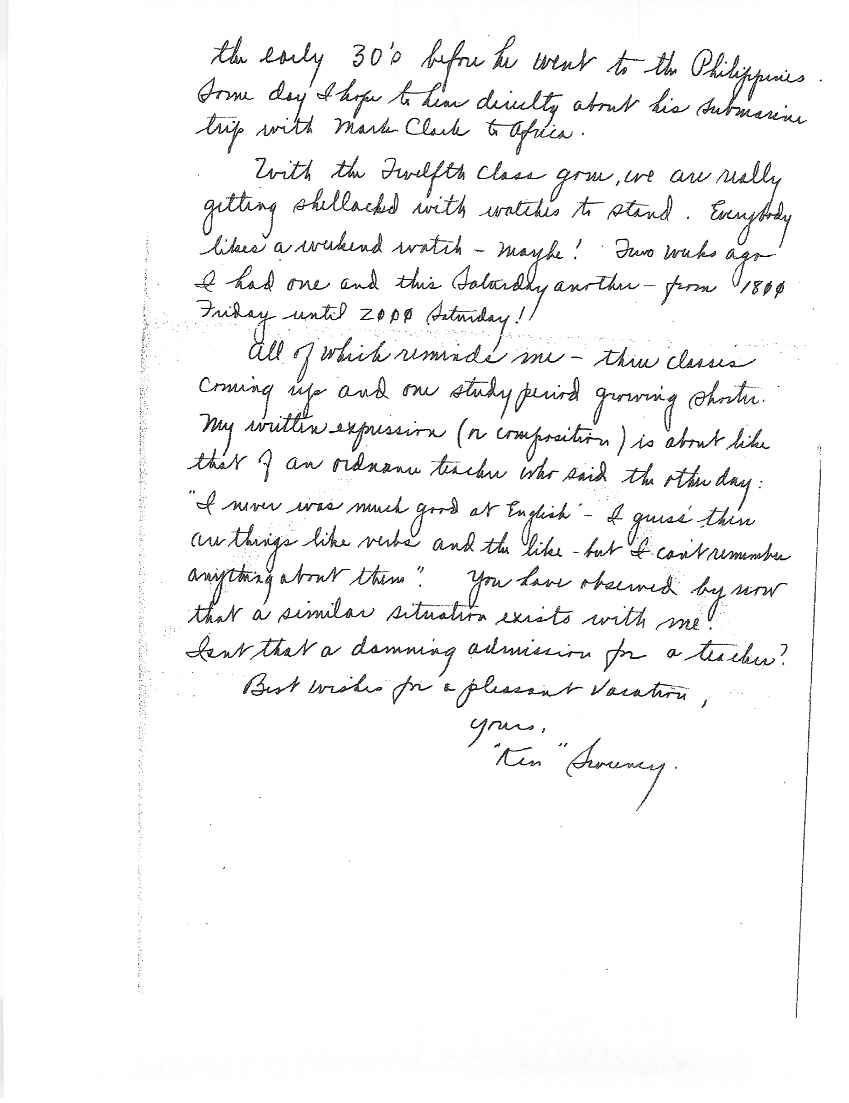 the early 30's before he went to the Philippines.
Some day I hope to hear directly about his submarine
trip with Mark Clark to Africa.
With the Twelfth class gone, we are really
getting shellacked with watches to stand. Everybody
likes a weekend watch - maybe! Two weeks ago
I had one and this Saturday another - from 1800
Friday until 2000 Saturday!!
All of which reminds me - three classes
coming up and one study period growing shorter.
My written expression (or composition) is about like
that of an ordnance teacher who said the other day:
"I never was much good at English - I guess there
are things like verbs and the like - but I can't remember
anything about them". You have observed by now
that a similar situation exists with me.
Isnt that a damning admission for a teacher?
Best wishes for a pleasant vacation,
Yours,
"Ken" Sweeney.